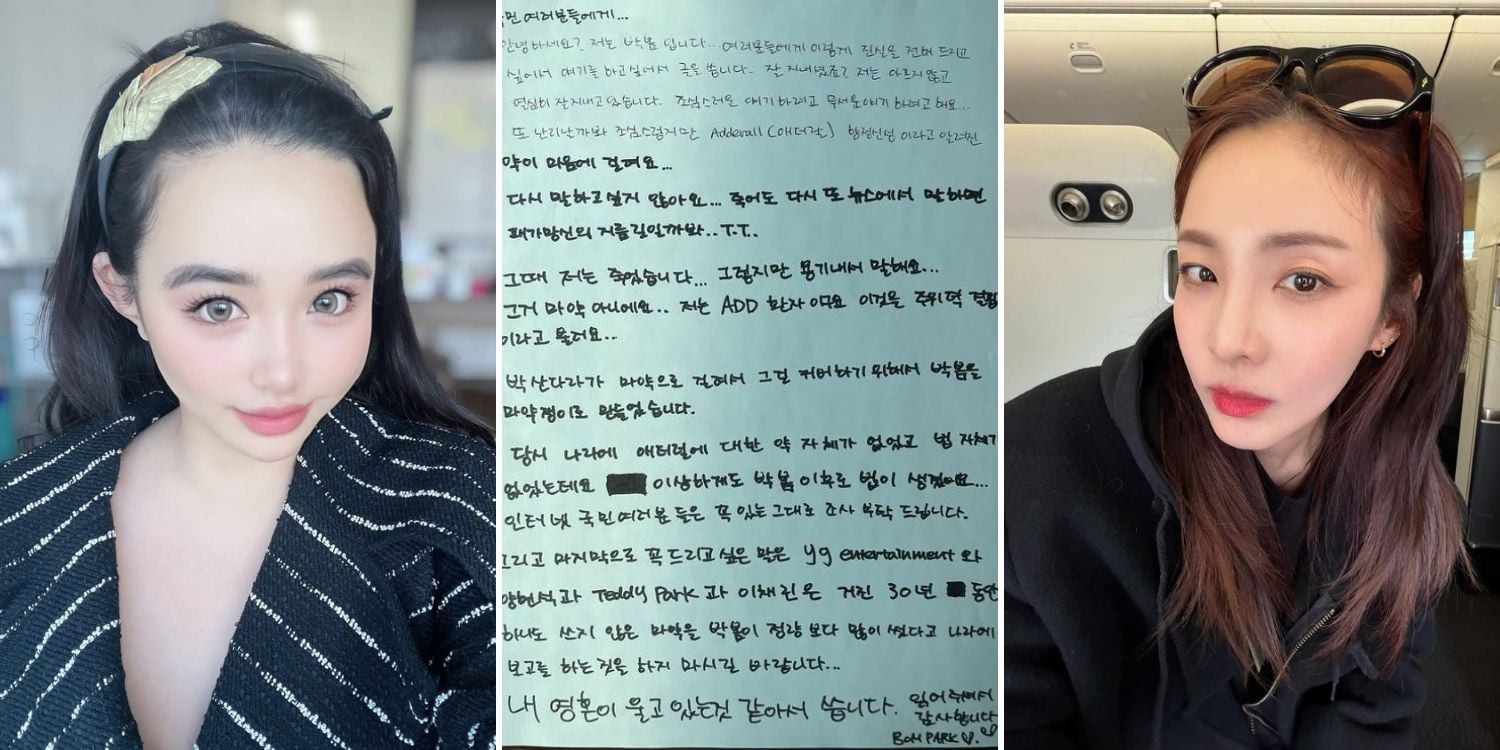 국민 여러분들에게...
안녕하세요? 저는 박봄 입니다... 여러분들에게 이렇게 진실을 전해 드리고
싶어서 얘기를 하고싶어서 글을 씁니다.. 잘 지내셨죠? 저는 아프지 않고
열심히 잘지내고 있습니다. 조심스러운 얘기 하려고 무서운얘기 하려고 해요...
또 난리난까봐 조심스럽지만 Adderall (애더럴) 향정신성 이라고 알려진
약이 마음에 걸려요...
다시 말하고싶지 않아요... 죽어도 다시 또 뉴스에서 말하면
패가망신의 지름길일까봐.. T.T..
그때 저는 죽었습니다... 그렇지만 용기내서 말해요...
그거 마약 아니에요.. 저는 ADD 환자 이므로 이것을 주위력 결핍
이라고 불러요..
박산다라가 마약으로 걸려서 그걸 커버하기 위해서 박봄을
마약쟁이로 만들었습니다.
당시 나라에 애더럴에 대한 약 자체가 없었고 법 자체가
없었는데요 이상하게도 박봄 이후로 법이 생겼어요...
인터넷 국민여러분 들은 꼭 있는 그대로 조사 부탁 드립니다.
그리고 마지막으로 꼭 드리고 싶은 말은 yg entertainment 와
양현석과 Teddy Park 과 이채린은 거진 30년 동안
하나도 쓰지 않은 마약을 박봄이 정량 보다 많이 썼다고 나라에
보고를 하는것을 하지 마시길 바랍니다...
내 영혼이 울고 있는것 같아서 씁니다. 읽어 주셔서
감사합니다
BOM PARK ♡.♡